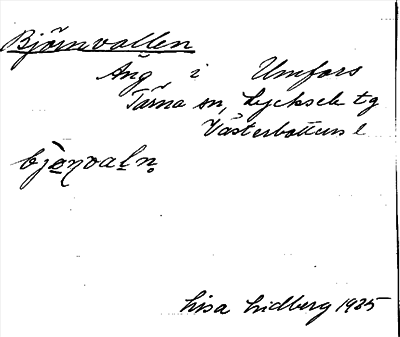 Björnvallen
Äng i Umfors
Tärna sn, Lycksele tg
Västerbottens l
bjö̀ŋvaḷn̥
Lisa Lidberg 1935